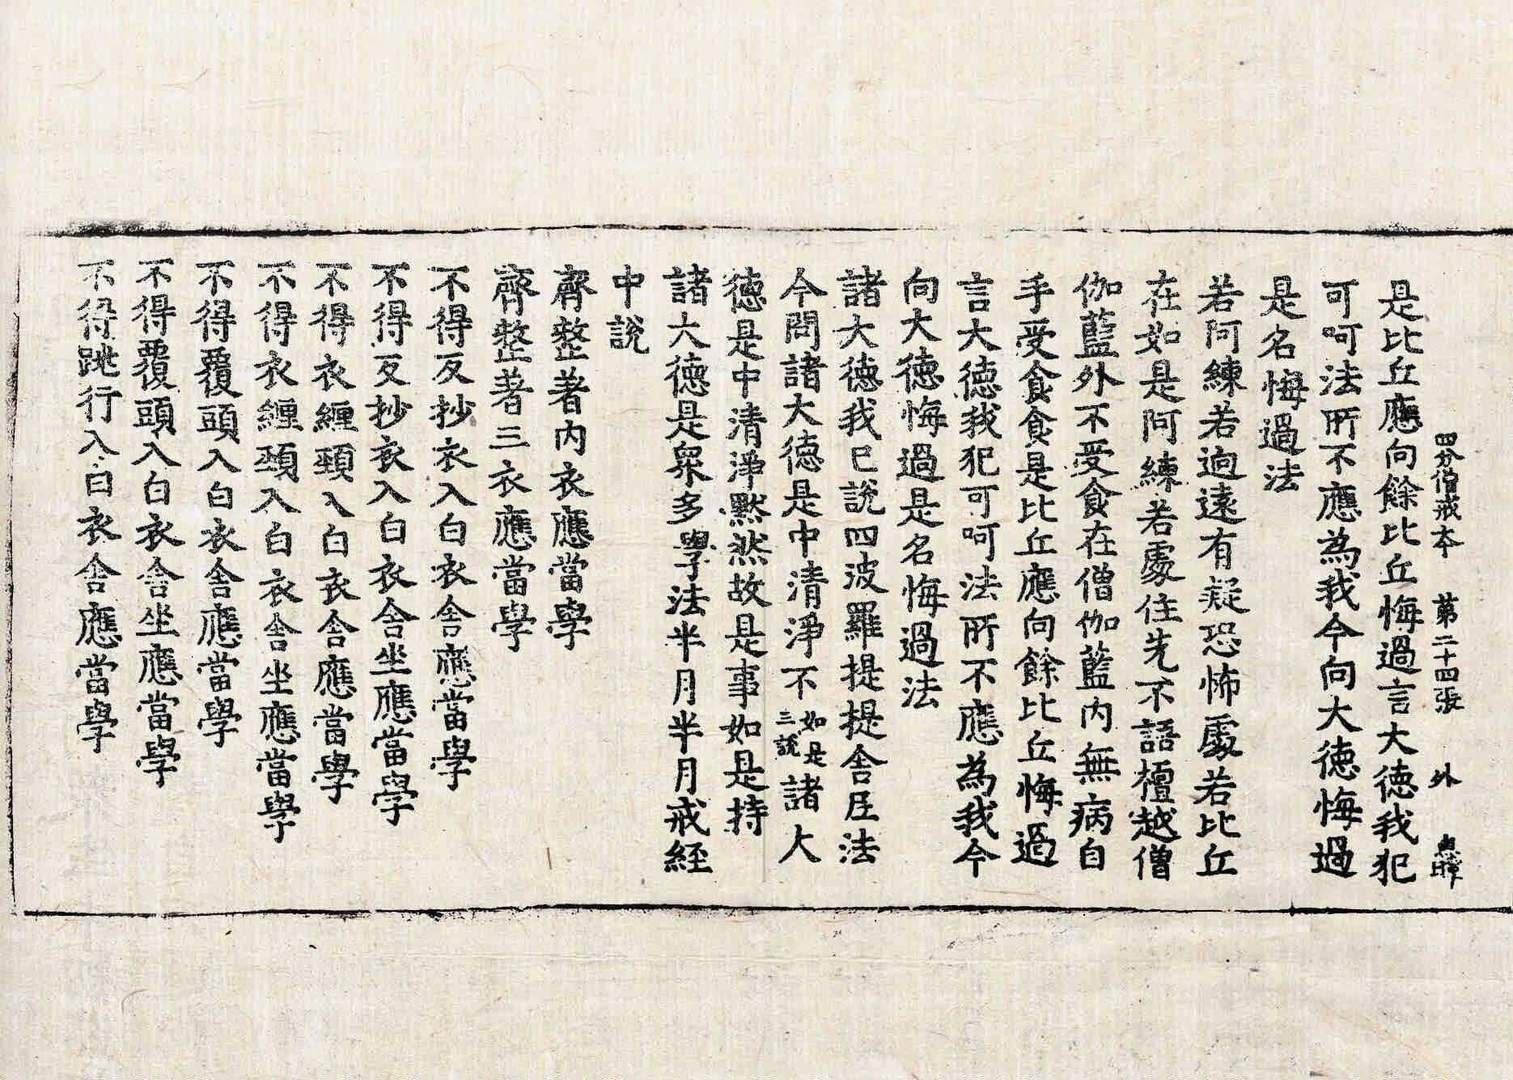 四分僧戒本 第二十四張 外
是比丘應向餘比丘悔過言大德我犯
可呵法所不應為我今向大德悔過
是名悔過法
若阿練若逈遠有疑恐怖處若比丘
在如是阿練若處住先不語檀越僧
伽藍外不受食在僧伽藍內無病自
手受食食是比丘應向餘比丘悔過
言大德我犯可呵法所不應為我今
向大德悔過是名悔過法
諸大德我已說四波羅提提舍尼法
今問諸大德是中清淨不如是三說諸大
德是中清淨默然故是事如是持
諸大德是眾多學法半月半月戒経
中說
齊整著內衣應當學
齊整著三衣應當學
不得反抄衣入白衣舍應當學
不得反抄衣入白衣舍坐應當學
不得衣纏頸入白衣舍應當學
不得衣纏頸入白衣舍坐應當學
不得覆頭入白衣舍應當學
不得覆頭入白衣舍坐應當學
不得跳行入白衣舍應當學